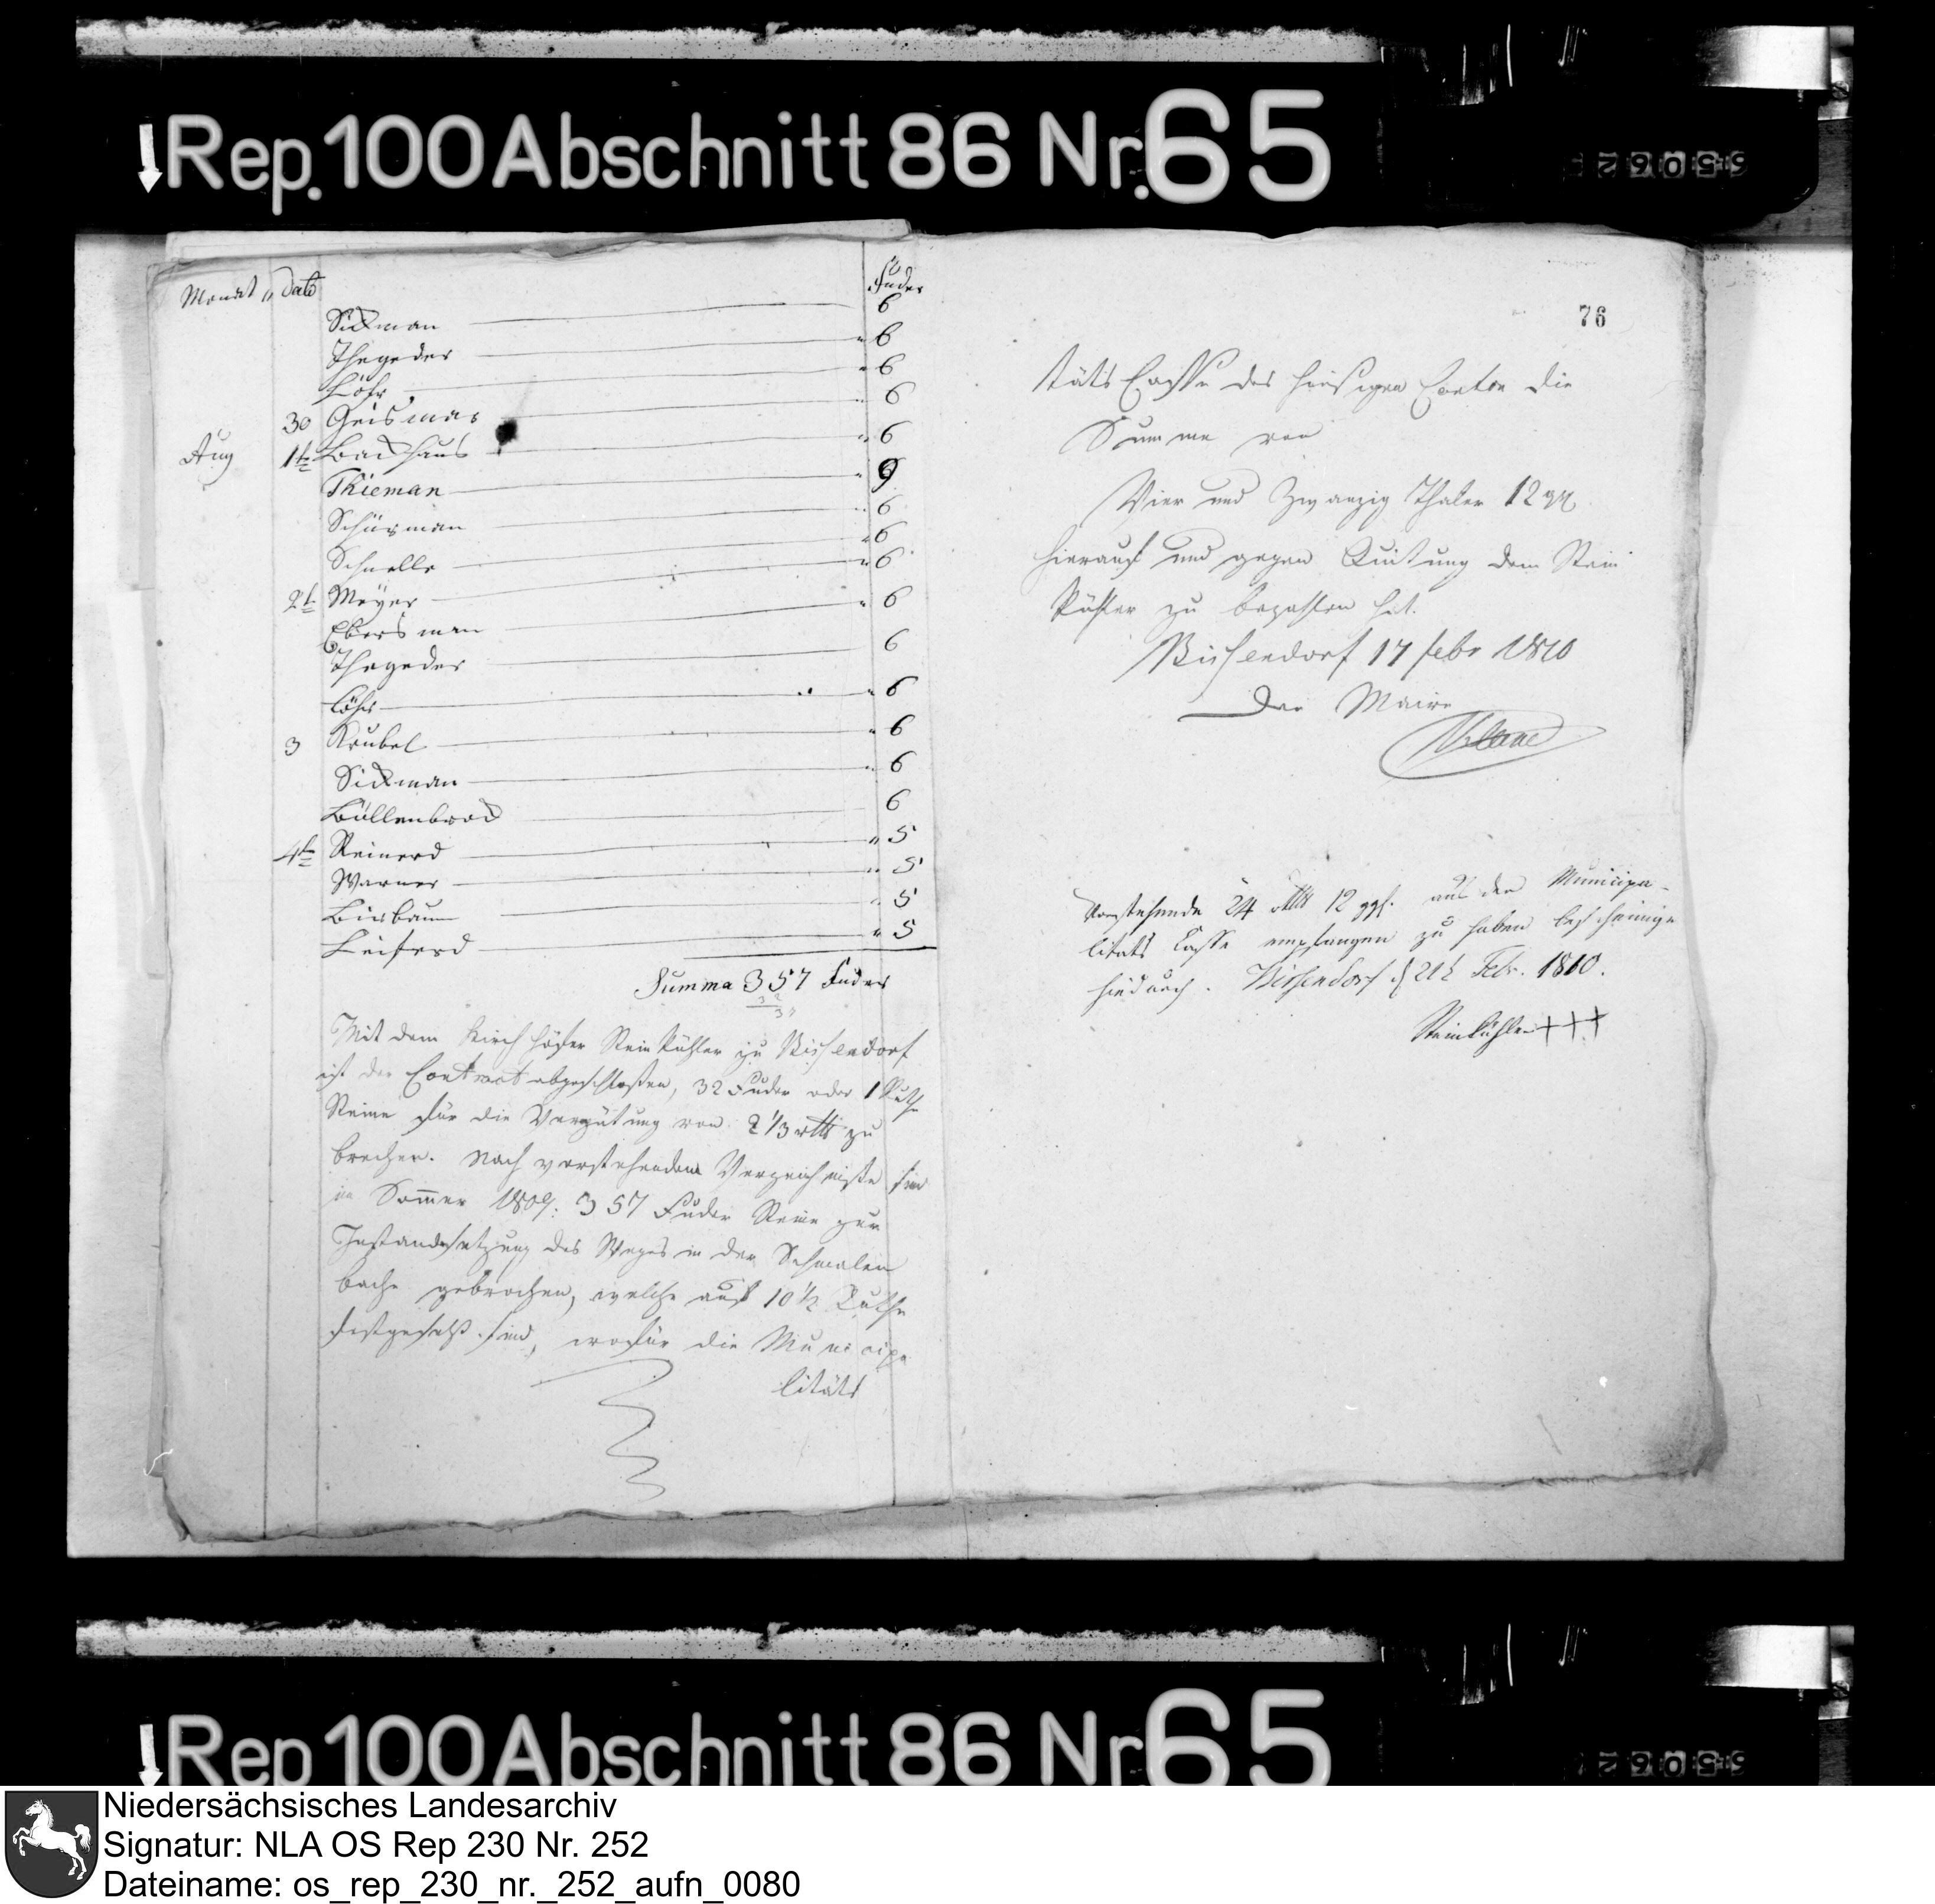 Rep. 100 Abschnitt 86 Nr. 65
Monat u Dato Fuder
Sickman 6
Thegeder " 6
Löhr " 6
30 Geismar " 6
Aug 1t Backhaus " 6
Thieman " 9
Schürman " 6
Schnelle " 6
2t Meyer " 6
Ebersman " 6
Thegeder 6
Löhr " 6
3 Knubel " 6
Sickman " 6
Büllenbrock 6
4t Reinerd " 5
Warner " 5
Birbaum " 5
Leiferd " 5
Summa 357 Fuder
Mit dem Kirchhöfer Steinkühler zu Bissendorf
ist der Contract abgeschloßen, 32 Fuder oder 1 Ruthe
Steine für die Vergütung von 2 1/3 rthl zu
brechen. Nach vorstehendem Verzeichniße sind
im Sommer 1809: 357 Fuder Steine zur
Instandsetzung des Weges in der Schmalen
bache gebrochen, welche auf 10 1/2 Ruthe
festgesetzt sind, wofür die Municipa
litäts
76
täts Casse des hiesigen Canton die
Summe von
Vier und Zwanzig Thaler 12 ggl
hierauf und gegen Quitung dem Stein
kühler zu bezahlen hat.
Bissendorf 17 febr 1810
Der Maire
Vorstehende 24 rthlr 12 ggl. aus der Municipa-
litäts Casse empfangen zu haben bescheinige
hiedurch. Bissendorf d 21t Febr. 1810.
Steinkühler +++
Rep 100 Abschnitt 86 Nr 65
Niedersächsisches Landesarchiv
Signatur: NLA OS Rep 230 Nr. 252
Dateiname: os_rep_230_nr._252_aufn_0080